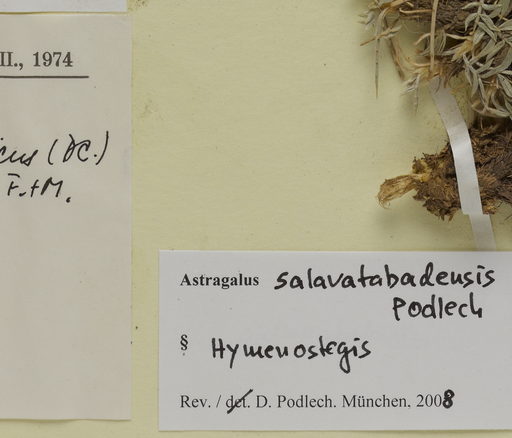 II., 1974
cus (DC.)
F. + M.
Astragalus salavatabadensis
Podlech
§ Hymenostegis
Rev. / det. D. Podlech. München, 2008